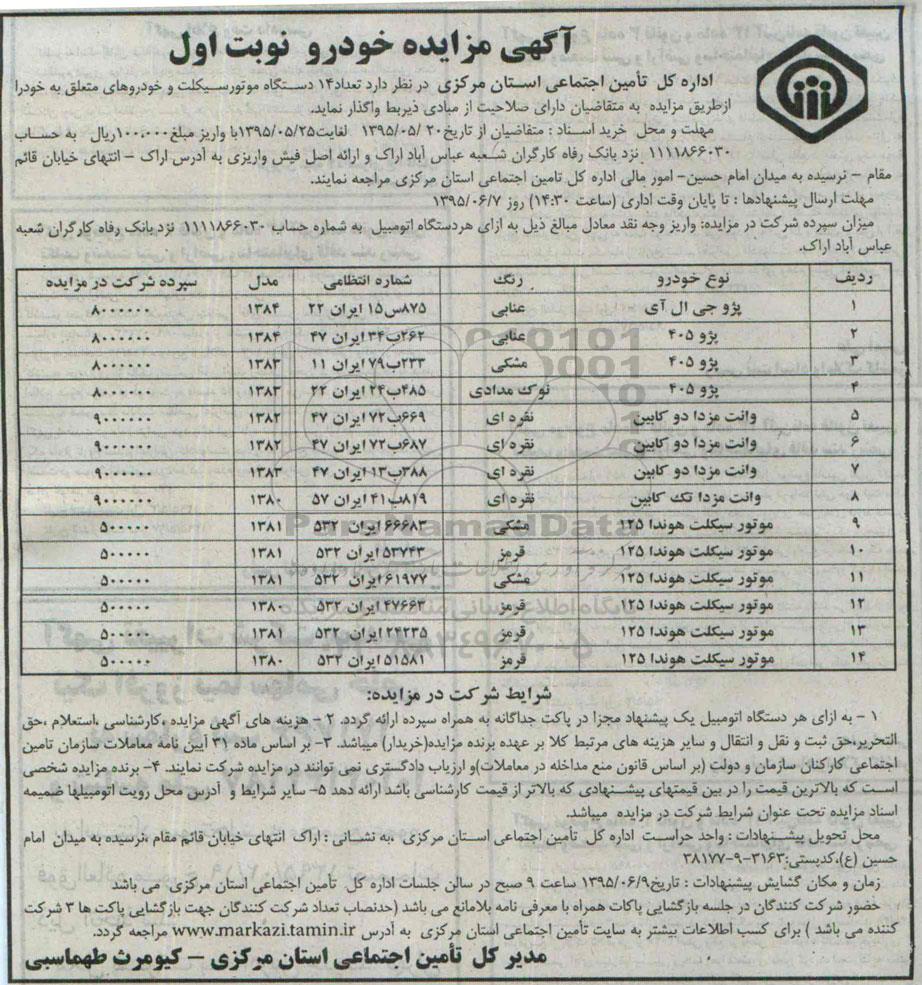 آگهی مزایده خودرو نوبت اول
اداره کل تأمین اجتماعی استان مرکزی در نظر دارد تعداد۱۴ دستگاه موتورسیکلت و خودروهای متعلق به خودرا
ازطریق مزایده به متقاضیان دارای صلاحیت از مبادی ذیربط واگذار نماید.
مهلت و محل خرید اسناد : متقاضیان از تاریخ۲۰ /۱۳۹۵/۰۵ لغایت۱۳۹۵/۰۵/۲۵با واریز مبلغ۱۰۰،۰۰۰ریال به حساب
۱۱۱۱۸۶۶۰۳۰ نزد بانک رفاه کارگران شعبه عباس آباد اراک و ارائه اصل فیش واریزی به آدرس اراک – انتهای خیابان قائم
مقام – نرسیده به میدان امام حسین- امور مالی اداره کل تامین اجتماعی استان مرکزی مراجعه نمایند.
مهلت ارسال پیشنهادها : تا پایان وقت اداری (ساعت ۱۴:۳۰) روز ۱۳۹۵/۰۶/۷
میزان سپرده شرکت در مزایده: واریز وجه نقد معادل مبالغ ذیل به ازای هردستگاه اتومبیل به شماره حساب ۱۱۱۱۸۶۶۰۳۰ نزد بانک رفاه کارگران شعبه
عباس آباد اراک.
ردیف نوع خودرو رنگ شماره انتظامی مدل سپرده شرکت در مزایده
۱ پژو جی ال آی عنابی ۸۷۵س۱۵ ایران ۲۲ ۱۳۸۴ ۸۰۰۰۰۰۰
۲ پژو ۴۰۵ عنابی ۲۶۲ب۳۴ ایران ۴۷ ۱۳۸۴ ۸۰۰۰۰۰۰
۳ پژو ۴۰۵ مشکی ۲۳۳ب۷۹ ایران ۱۱ ۱۳۸۳ ۸۰۰۰۰۰۰
۴ پژو ۴۰۵ نوک مدادی ۴۸۵ب۲۴ ایران ۲۲ ۱۳۸۳ ۸۰۰۰۰۰۰
۵ وانت مزدا دو کابین نقره ای ۶۶۹ب۷۲ ایران ۴۷ ۱۳۸۲ ۹۰۰۰۰۰۰
۶ وانت مزدا دو کابین نقره ای ۶۸۷ب۷۲ ایران ۴۷ ۱۳۸۲ ۹۰۰۰۰۰۰
۷ وانت مزدا دو کابین نقره ای ۳۸۸ب۱۳ ایران ۴۷ ۱۳۸۳ ۹۰۰۰۰۰۰
۸ وانت مزدا تک کابین نقره ای ۸۱۹ب۴۱ ایران ۵۷ ۱۳۸۰ ۹۰۰۰۰۰۰
۹ موتور سیکلت هوندا ۱۲۵ مشکی ۶۶۶۸۳ ایران ۵۳۲ ۱۳۸۱ ۵۰۰۰۰۰
۱۰ موتور سیکلت هوندا ۱۲۵ قرمز ۵۳۷۴۳ ایران ۵۳۲ ۱۳۸۱ ۵۰۰۰۰۰
۱۱ موتور سیکلت هوندا ۱۲۵ مشکی ۶۱۹۷۷ ایران ۵۳۲ ۱۳۸۱ ۵۰۰۰۰۰
۱۲ موتور سیکلت هوندا ۱۲۵ قرمز ۴۷۶۶۳ ایران ۵۳۲ ۱۳۸۰ ۵۰۰۰۰۰
۱۳ موتور سیکلت هوندا ۱۲۵ قرمز ۲۴۲۳۵ ایران ۵۳۲ ۱۳۸۱ ۵۰۰۰۰۰
۱۴ موتور سیکلت هوندا ۱۲۵ قرمز ۵۱۵۸۱ ایران ۵۳۲ ۱۳۸۰ ۵۰۰۰۰۰
ParsNamadData
شرایط شرکت در مزایده:
۱ – به ازای هر دستگاه اتومبیل یک پیشنهاد مجزا در پاکت جداگانه به همراه سپرده ارائه گردد. ۲ – هزینه های آگهی مزایده ،کارشناسی ،استعلام ،حق
التحریر،حق ثبت و نقل و انتقال و سایر هزینه های مرتبط کلا بر عهده برنده مزایده(خریدار) میباشد. ۳- بر اساس ماده ۳۱ آیین نامه معاملات سازمان تامین
اجتماعی کارکنان سازمان و دولت (بر اساس قانون منع مداخله در معاملات)و ارزیاب دادگستری نمی توانند در مزایده شرکت نمایند. ۴- برنده مزایده شخصی
است که بالاترین قیمت را در بین قیمتهای پیشنهادی که بالاتر از قیمت کارشناسی باشد ارائه دهد ۵- سایر شرایط و آدرس محل رویت اتومبیلها ضمیمه
اسناد مزایده تحت عنوان شرایط شرکت در مزایده میباشد.
محل تحویل پیشنهادات : واحد حراست اداره کل تأمین اجتماعی استان مرکزی ،به نشانی : اراک انتهای خیابان قائم مقام ،نرسیده به میدان امام
حسین (ع)،کدپستی:۳۱۶۳-۹-۳۸۱۷۷
زمان و مکان گشایش پیشنهادات : تاریخ۱۳۹۵/۰۶/۹ ساعت ۹ صبح در سالن جلسات اداره کل تأمین اجتماعی استان مرکزی می باشد
حضور شرکت کنندگان در جلسه بازگشایی پاکات همراه با معرفی نامه بلامانع می باشد (حدنصاب تعداد شرکت کنندگان جهت بازگشایی پاکت ها ۳ شرکت
کننده می باشد ) برای کسب اطلاعات بیشتر به سایت تأمین اجتماعی استان مرکزی به آدرس www.markazi.tamin.ir مراجعه گردد.
مدیر کل تأمین اجتماعی استان مرکزی – کیومرث طهماسبی